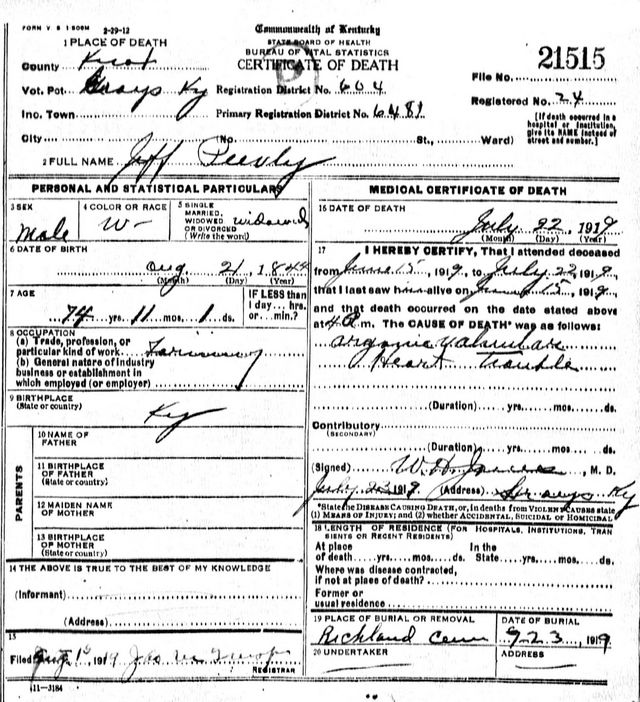 FORM V. S 1 500M 2-29-12
Commonwealth of Kentucky
STATE BOARD OF HEALTH
BUREAU OF VITAL STATISTICS
CERTIFICATE OF DEATH
1 PLACE OF DEATH
County Knox
Vot. Pct Grays Ky
Inc. Town
City
Registration District No. 604
Primary Registration District No. 6481
No. St., Ward)
File No. 21515
Registered No. 24
[If death occurred in a
hospital or institution,
give its NAME instead of
street and number.]
2 FULL NAME Jeff Peevly
PERSONAL AND STATISTICAL PARTICULARS
3 SEX
Male
4 COLOR OR RACE
W-
5 SINGLE
MARRIED,
WIDOWED
OR DIVORCED
(Write the word)
widowed
6 DATE OF BIRTH
Aug 21, 1844
(Month) (Day) (Year)
7 AGE
74 yrs. 11 mos. 1 ds.
IF LESS than
1 day ... hrs.
or ... min.?
8 OCCUPATION
(a) Trade, profession, or
particular kind of work Farming
(b) General nature of industry
business or establishment in
which employed (or employer)
9 BIRTHPLACE
(State or country)
Ky
PARENTS
10 NAME OF
FATHER
11 BIRTHPLACE
OF FATHER
(State or country)
12 MAIDEN NAME
OF MOTHER
13 BIRTHPLACE
OF MOTHER
(State or country)
14 THE ABOVE IS TRUE TO THE BEST OF MY KNOWLEDGE
(Informant)
(Address)
15
Filed 1919
REGISTRAR
11-3184
MEDICAL CERTIFICATE OF DEATH
16 DATE OF DEATH
July 22, 1919
(Month) (Day) (Year)
17 I HEREBY CERTIFY, That I attended deceased
from June 15, 1919, to July 22, 1919,
that I last saw him alive on 15, 1919,
and that death occurred on the date stated above
at 4 m. The CAUSE OF DEATH* was as follows:
organic valvular
Heart trouble
(Duration) yrs. mos. ds.
Contributory
(SECONDARY)
(Duration) yrs. mos. ds.
(Signed) W. H. M. D.
July 23 1919 (Address) Grays Ky
*State the DISEASE CAUSING DEATH, or, in deaths from VIOLENT CAUSES state
(1) MEANS OF INJURY; and (2) whether ACCIDENTAL, SUICIDAL OR HOMICIDAL
18 LENGTH OF RESIDENCE (FOR HOSPITALS, INSTITUTIONS, TRAN
SIENTS OR RECENT RESIDENTS)
At place In the
of death yrs. mos. ds. State yrs. mos. ds.
Where was disease contracted,
if not at place of death?
Former or
usual residence
19 PLACE OF BURIAL OR REMOVAL
Richland Cem
DATE OF BURIAL
23, 1919
20 UNDERTAKER
ADDRESS